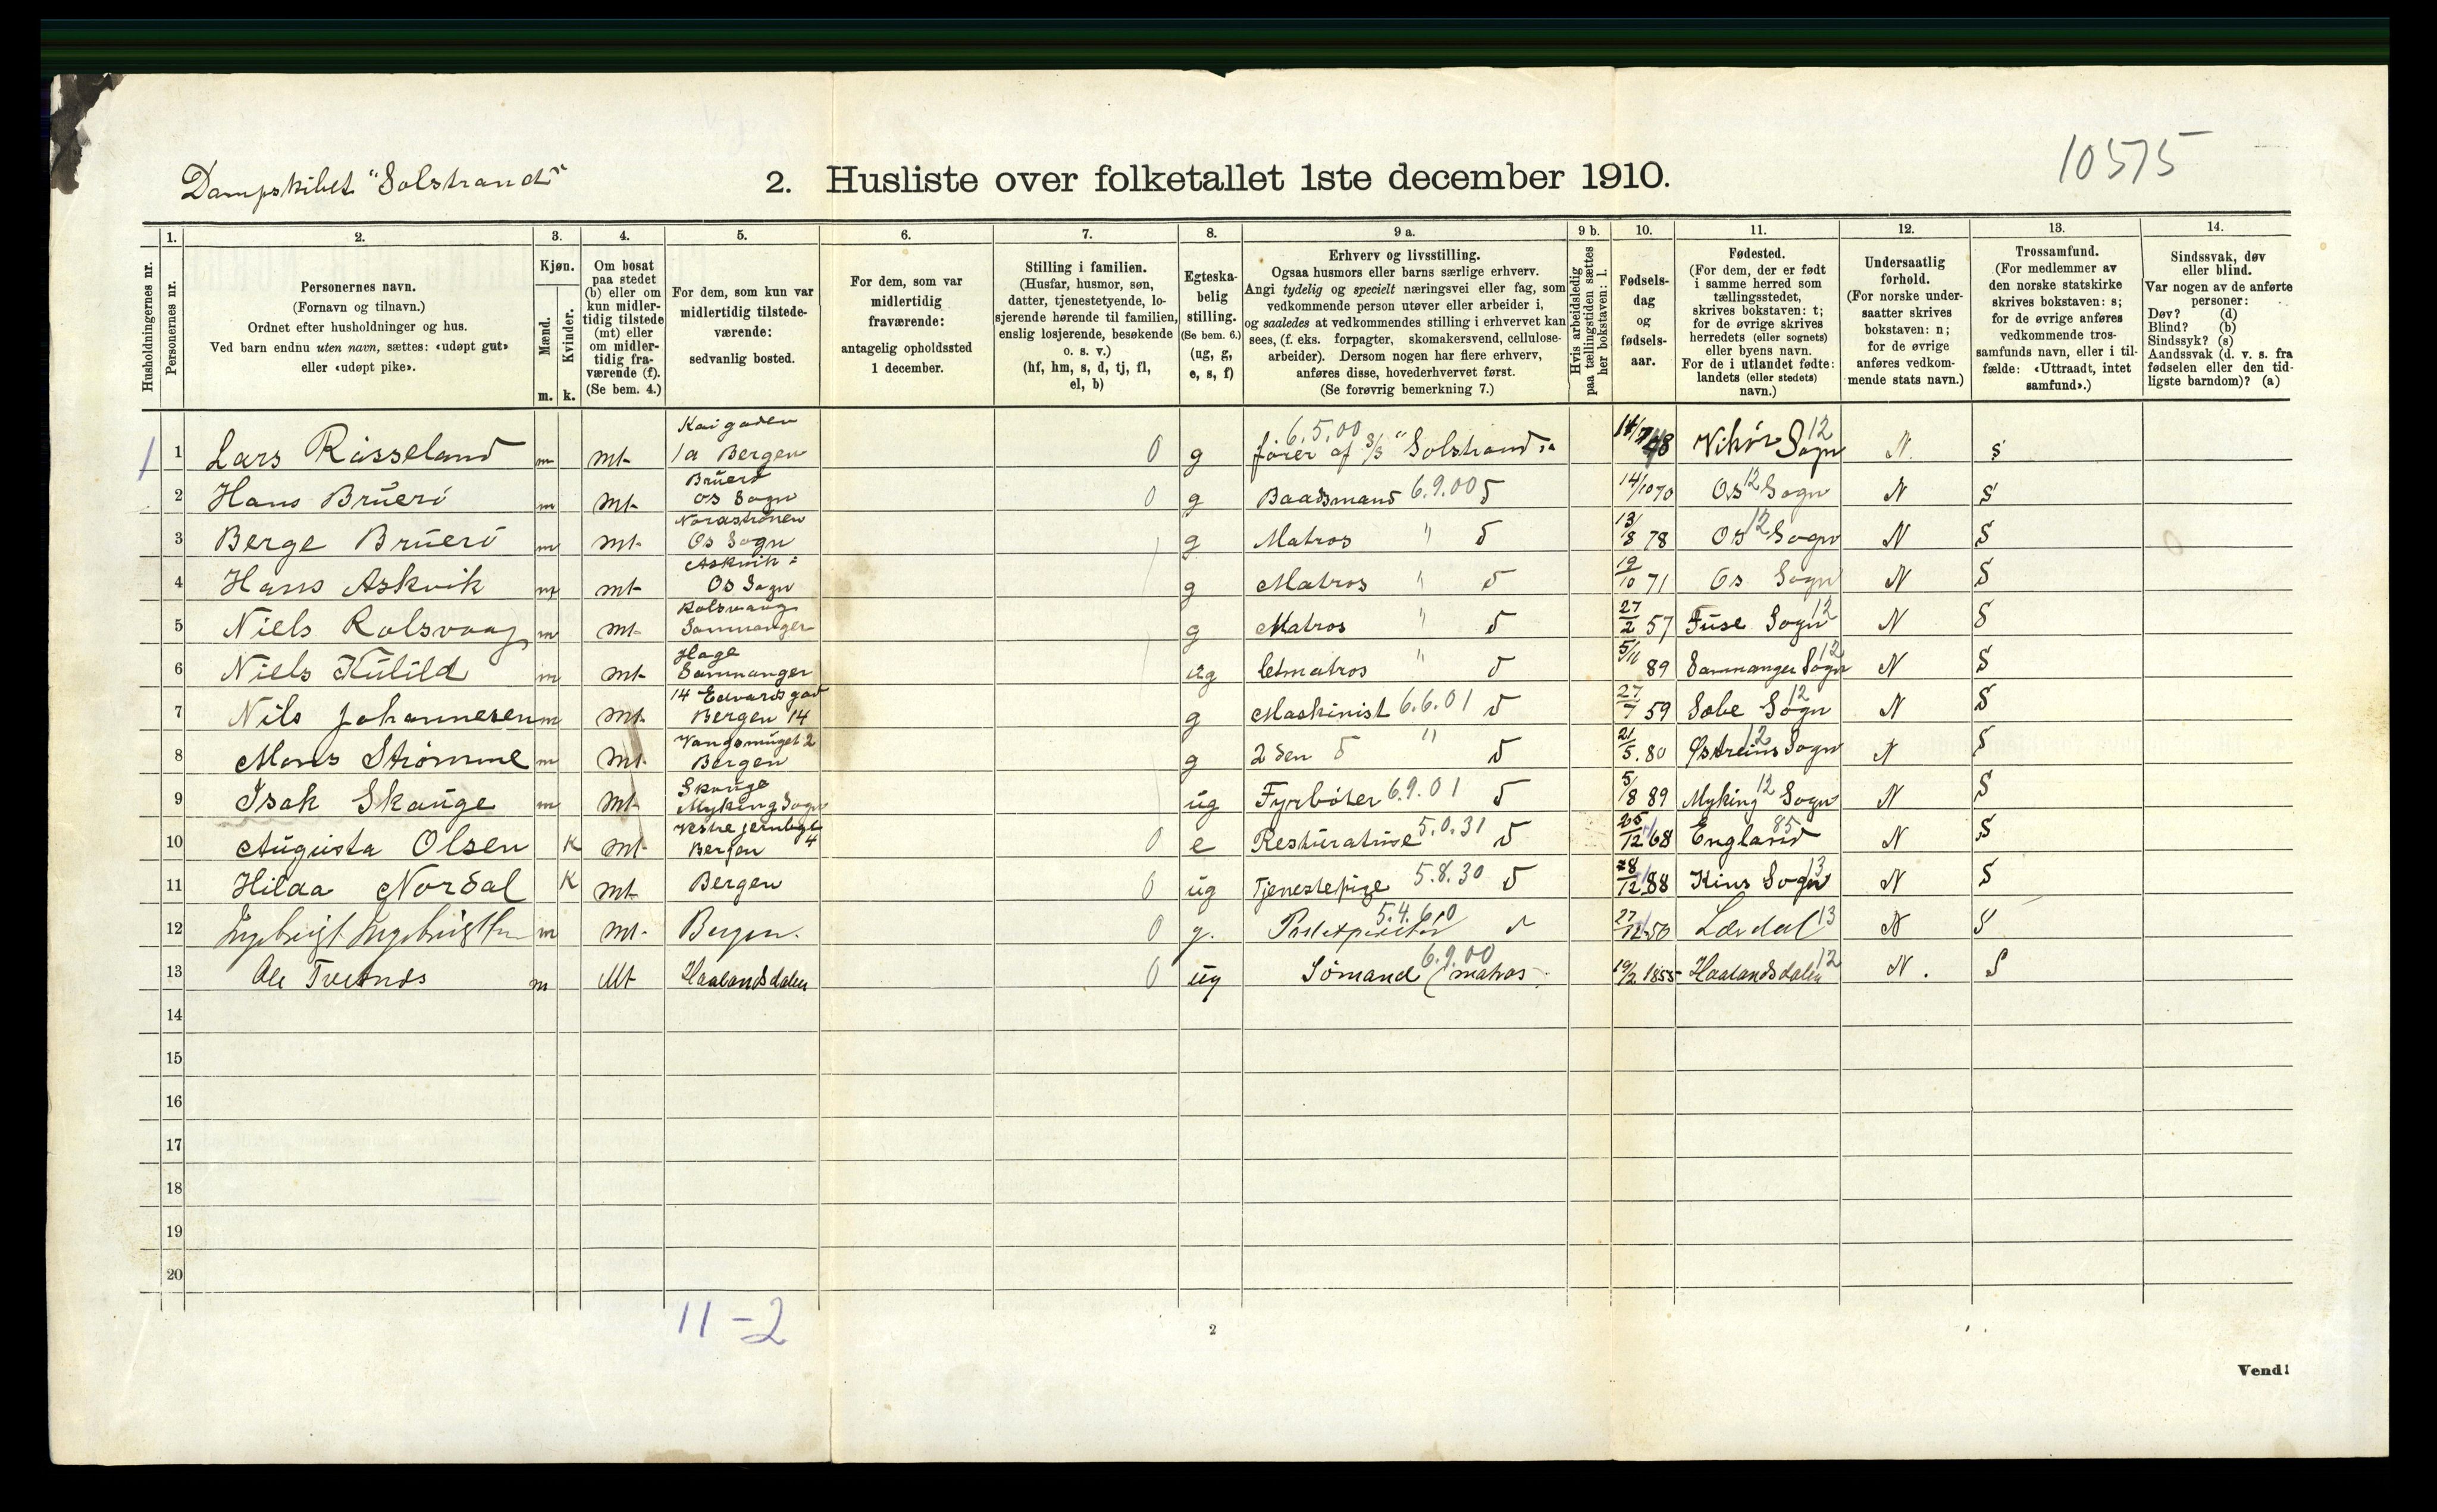 Dampskibet "Solstrand"
2. Husliste over folketallet 1ste december 1910.
10575
Husholdningernes nr.
1. Personernes nr.
2. Personernes navn.
(Fornavn og tilnavn.)
Ordnet efter husholdninger og hus.
Ved barn endnu uten navn, sættes: «udøpt gut»
eller «udøpt pike».
3. Kjøn.
Mænd. m.
Kvinder. k.
4. Om bosat
paa stedet
(b) eller om
kun midler-
tidig tilstede
(mt) eller
om midler-
tidig fra-
værende (f).
(Se bem. 4.)
5. For dem, som kun var
midlertidig tilstede-
værende:
sedvanlig bosted.
6. For dem, som var
midlertidig
fraværende:
antagelig opholdssted
1 december.
7. Stilling i familien.
(Husfar, husmor, søn,
datter, tjenestetyende, lo-
sjerende hørende til familien,
enslig losjerende, besøkende
o. s. v.)
(hf, hm, s, d, tj, fl,
el, b)
8. Egteska-
belig
stilling.
(Se bem. 6.)
(ug, g,
e, s, f)
9 a. Erhverv og livsstilling.
Ogsaa husmors eller barns særlige erhverv.
Angi tydelig og specielt næringsvei eller fag, som
vedkommende person utøver eller arbeider i,
og saaledes at vedkommendes stilling i erhvervet kan
sees, (f. eks. forpagter, skomakersvend, cellulose-
arbeider). Dersom nogen har flere erhverv,
anføres disse, hovederhvervet først.
(Se forøvrig bemerkning 7.)
9 b. Hvis arbeidsledig
paa tællingstiden sættes
her bokstaven: l.
10. Fødsels-
dag
og
fødsels-
aar.
11. Fødested.
(For dem, der er født
i samme herred som
tællingsstedet,
skrives bokstaven: t;
for de øvrige skrives
herredets (eller sognets)
eller byens navn.
For de i utlandet fødte:
landets (eller stedets)
navn.)
12. Undersaatlig
forhold.
(For norske under-
saatter skrives
bokstaven: n;
for de øvrige
anføres vedkom-
mende stats navn.)
13. Trossamfund.
(For medlemmer av
den norske statskirke
skrives bokstaven: s;
for de øvrige anføres
vedkommende tros-
samfunds navn, eller i til-
fælde: «Uttraadt, intet
samfund».)
14. Sindssvak, døv
eller blind.
Var nogen av de anførte
personer:
Døv? (d)
Blind? (b)
Sindssyk? (s)
Aandssvak (d. v. s. fra
fødselen eller den tid-
ligste barndom)? (a)
1 1 Lars Risseland m mt Kaigaden 1a Bergen 0 g 6.5.00 fører af S/S "Solstrand" 14/7 48 Vikør Sogn 12 N. s
2 Hans Brüerö m mt Brüerö Os Sogn 0 g Baadsmand 6.9.00 14/10 70 Os 12 Sogn N S
3 Berge Brüerö m mt Os Sogn g Matros " 13/8 78 Os 12 Sogn N S
4 Hans Askvik m mt Askvik Os Sogn g Matros " 19/10 71 Os Sogn N S
5 Niels Rolsvaag m mt Rolsvaag Samnanger g Matros " 27/2 57 Füse Sogn 12 N S
6 Niels Külild m mt Hage Samnanger ug letmatros " 5/11 89 Samnanger Sogn 12 N S
7 Nils Johannesen m mt 14 Edvardsgad Bergen 14 g Maskinist 6.6.01 27/7 59 Sobe Sogn 12 N S
8 Mons Strömme m mt Bergen g 2den " 21/5 80 Østreim Sogn 12 N S
9 Isak Skauge m mt Skauge Myking Sogn ug Fyrböter 6.9.01 5/8 89 Myking 12 Sogn N S
10 Augusta Olsen K mt Vestre jernbgt 4 Bergen 0 e 5.0.31 25/12 68 England 85 N S
11 Hilda Nordal K mt Bergen 0 ug Tjenestepige 5.8.30 28/12 88 Kins Sogn 13 N S
12 m mt Bergen. 0 g. Postexpeditör 5.4.60 27/12 50 Lærdal 13 N S
13 Ole m Mt Haalandsdalen 0 ug Sömand (matros 6.9.00 19/2 1855 Haalandsdalen 12 N. S
14
15
16
17
18
19
20
11-2
2
Vend!